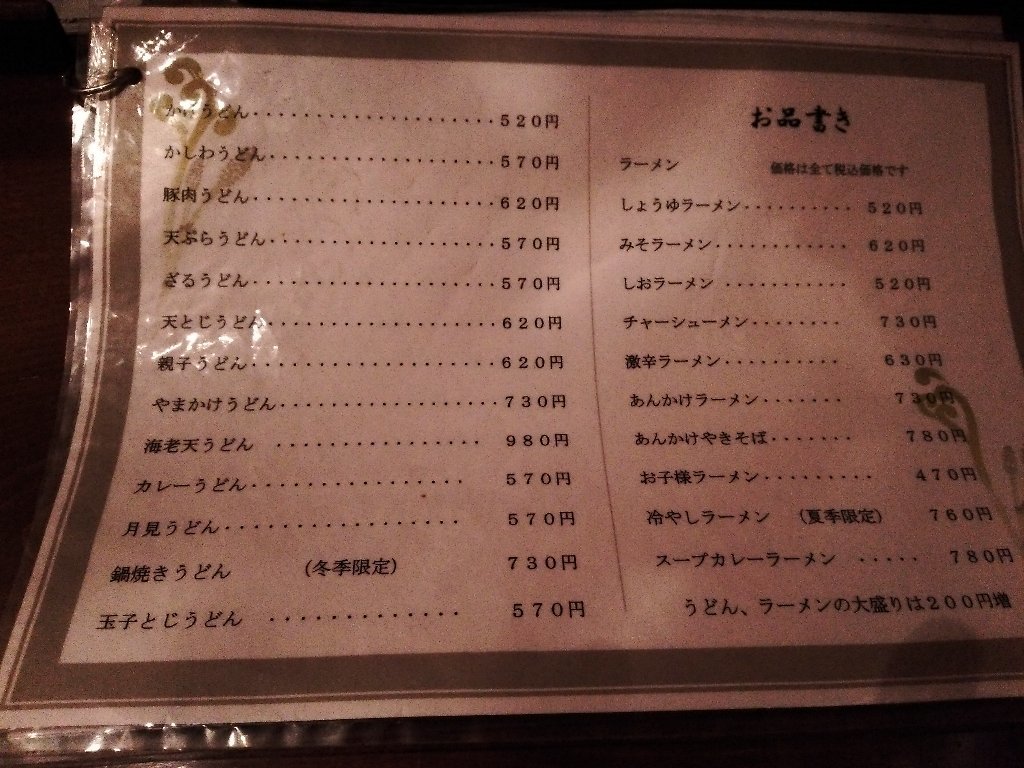 お品書き
ラーメン 価格は全て税込価格です
しょうゆラーメン・・・・・・・・・・ ５２０円
みそラーメン・・・・・・・・・・・・ ６２０円
しおラーメン ・・・・・・・・・・・ ５２０円
チャーシューメン・・・・・・・・ ７３０円
激辛ラーメン・・・・・・・・・・ ６３０円
あんかけラーメン・・・・・・・ ７３０円
あんかけやきそば・・・・・・・ ７８０円
お子様ラーメン・・・・・・・・・ ４７０円
冷やしラーメン （夏季限定） ７６０円
スープカレーラーメン ・・・・・ ７８０円
うどん、ラーメンの大盛りは２００円増
かけうどん・・・・・・・・・・・・・・・・・・・・５２０円
かしわうどん・・・・・・・・・・・・・・・・・・５７０円
豚肉うどん・・・・・・・・・・・・・・・・・・・・６２０円
天ぷらうどん・・・・・・・・・・・・・・・・・・５７０円
ざるうどん・・・・・・・・・・・・・・・・・・・・５７０円
天とじうどん・・・・・・・・・・・・・・・・・・６２０円
親子うどん・・・・・・・・・・・・・・・・・・・・６２０円
やまかけうどん・・・・・・・・・・・・・・・・・７３０円
海老天うどん ・・・・・・・・・・・・・・・・ ９８０円
カレーうどん・・・・・・・・・・・・・・・・・ ５７０円
月見うどん・・・・・・・・・・・・・・・・・・ ５７０円
鍋焼きうどん （冬季限定） ７３０円
玉子とじうどん ・・・・・・・・・・・・・ ５７０円